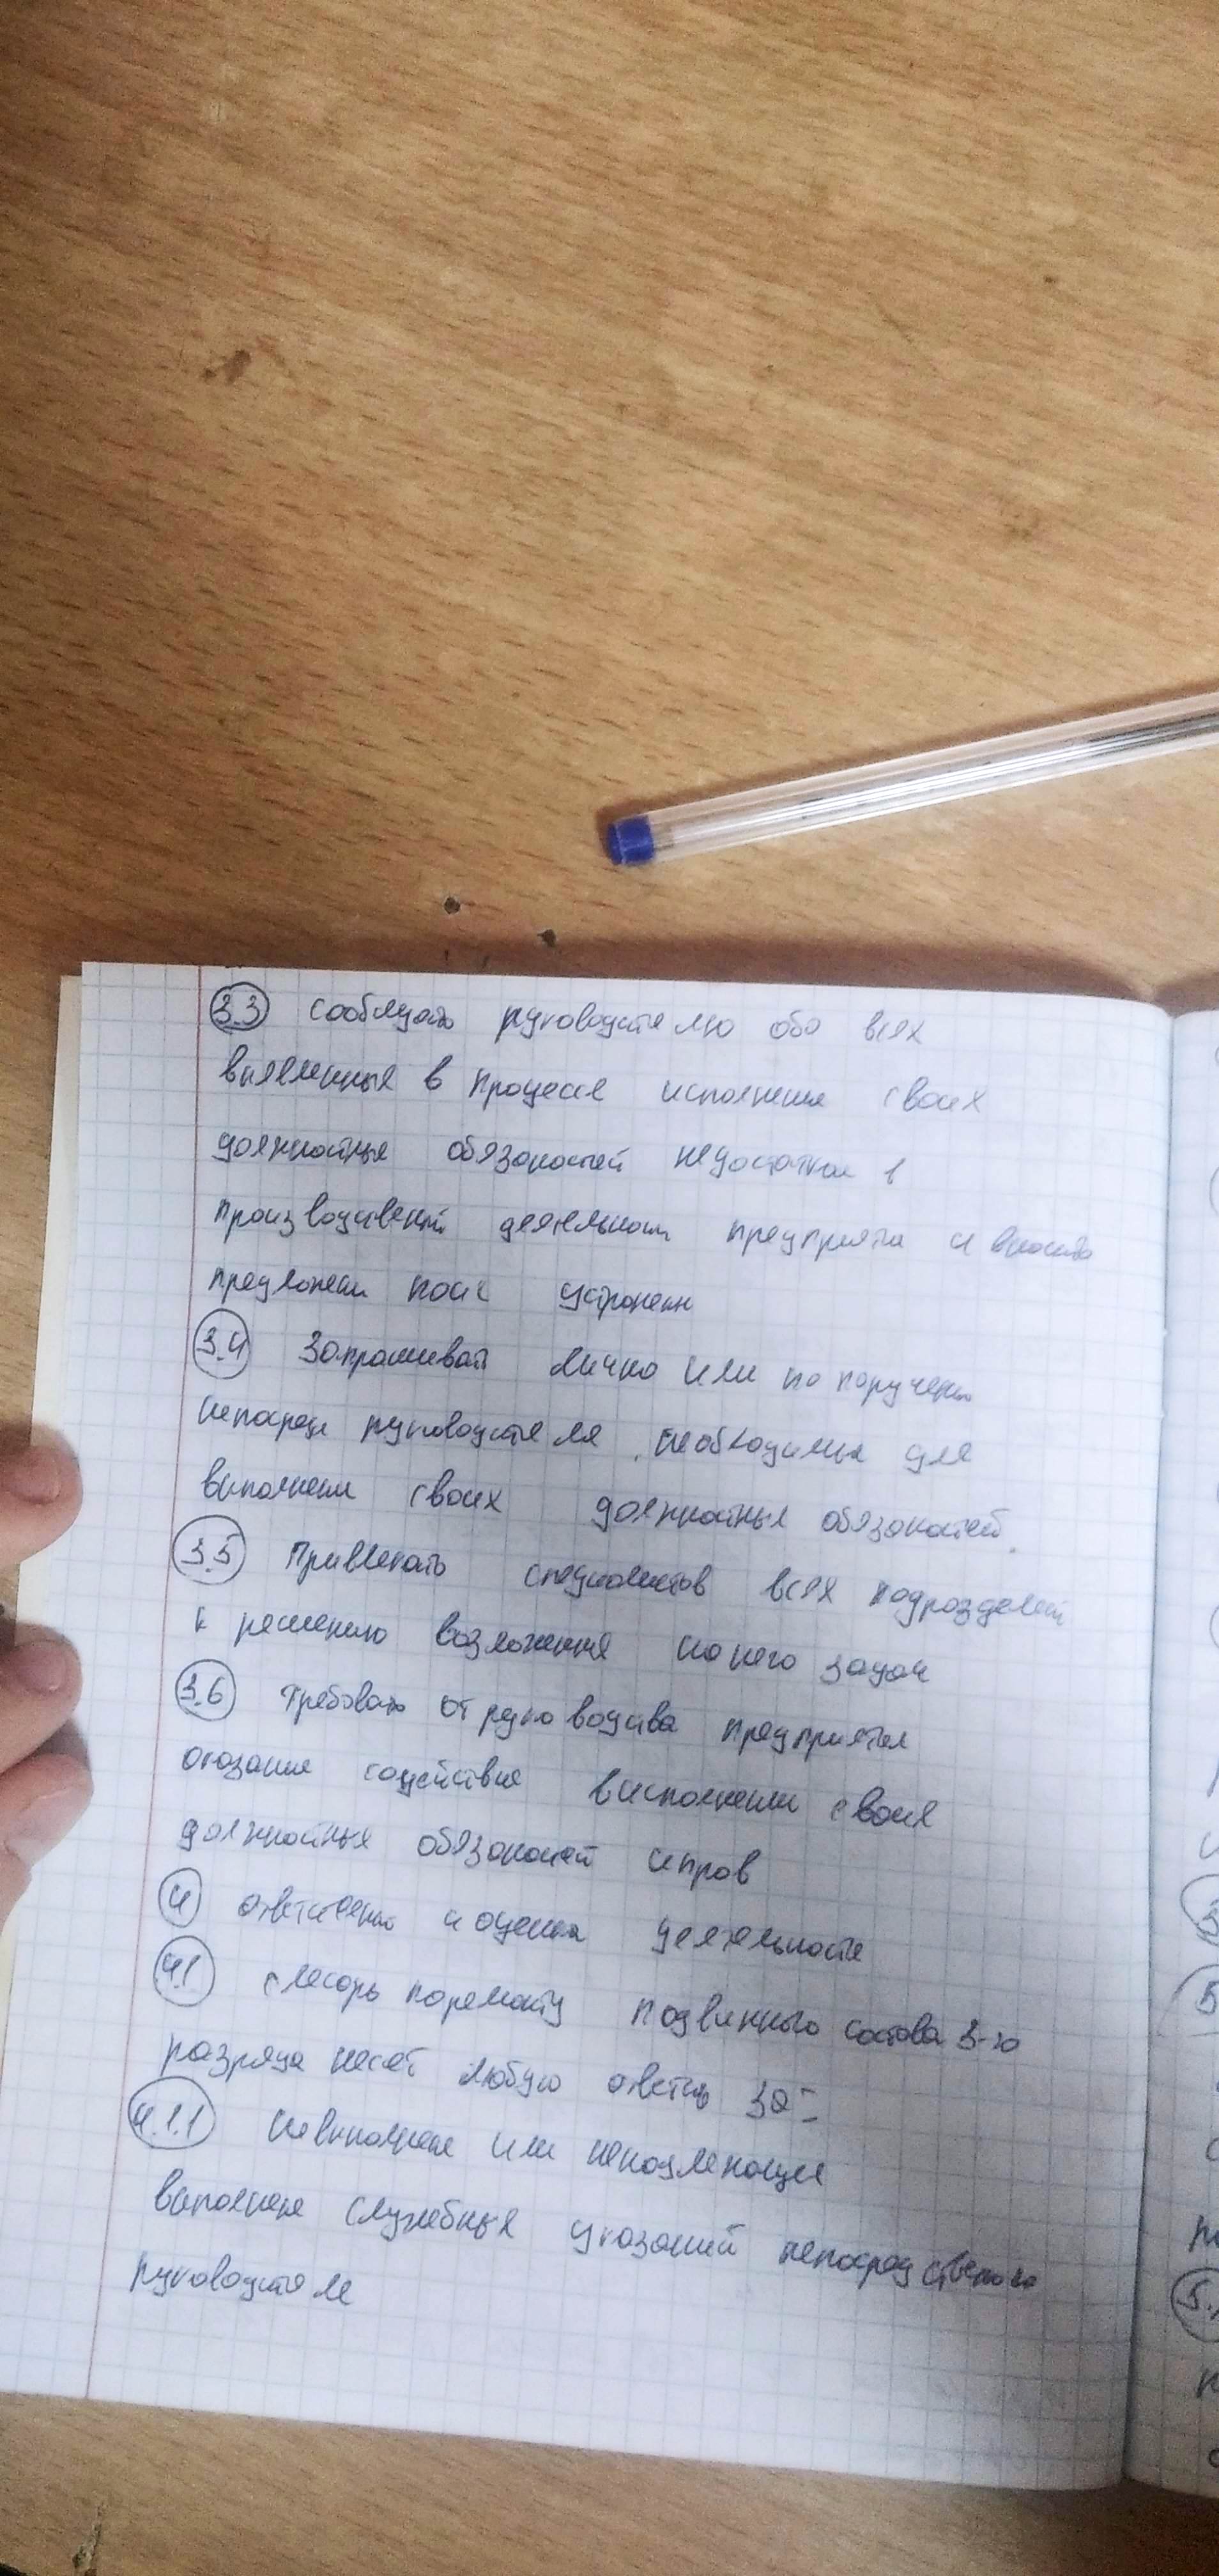 3.3 сообщать руководителю обо всех
выявленных в процессе исполнения своих
должностных обязаностей недостатках в
производственной деятельности предприятия и вносить
предложени по их устронени
3.4 Запрашивать лично или по поручению
непосред руководителя необходимы для
выполнени своих должностных обязаностей.
3.5 Привлекать специалистов всех подразделений
к решению возложенных на него задач
3.6 требовать от руководства предприятия
оказание содействие в исполнении своих
должностных обязаностей и прав
4 ответственость и оценка деятельности
4.1 слесарь по ремонту подвижного состава 3-го
разряда несёт любую ответсв за:
4.1.1 невыполнение или ненадлежащие
выполнение служебных указаний непосредственого
руководителя
3
5
5.